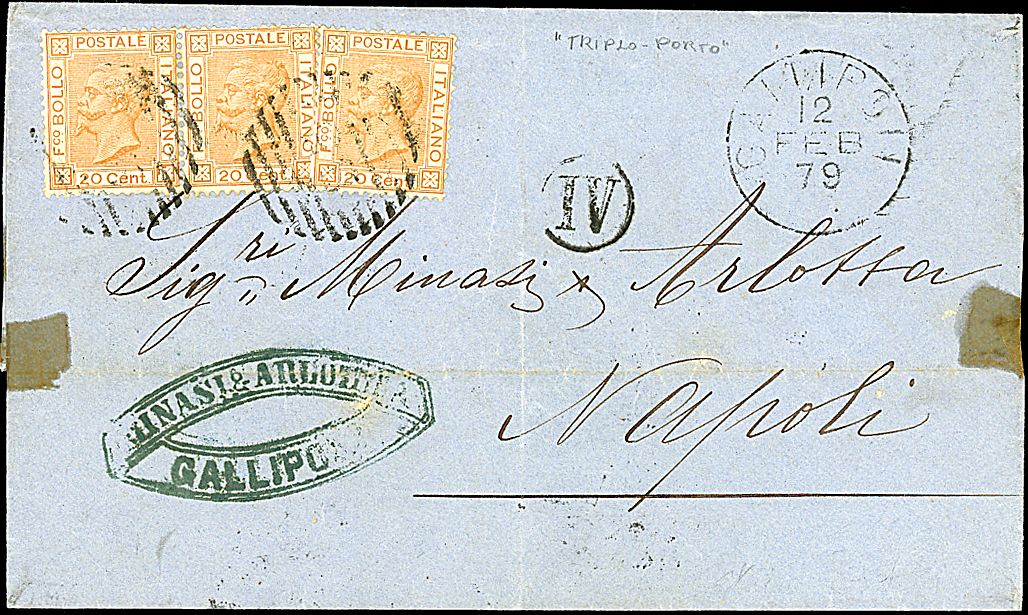 POSTALE POSTALE POSTALE
Fco BOLLO ITALIANO Fco BOLLO ITALIANO Fco BOLLO ITALIANO
20 Cent 20 Cent 20 Cent
"TRIPLO-PORTO"
GALLIPOLI
12
FEB
79
IV
Sig.ri Minasi & Arlotta
Napoli
MINASI & ARLOTTA
GALLIPOLI